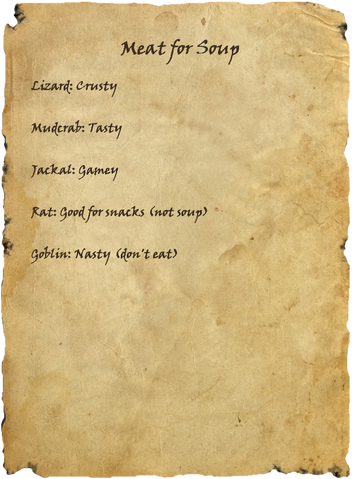 Meat for Soup
Lizard: Crusty
Mudcrab: Tasty
Jackal: Gamey
Rat: Good for snacks (not soup)
Goblin: Nasty (don't eat)